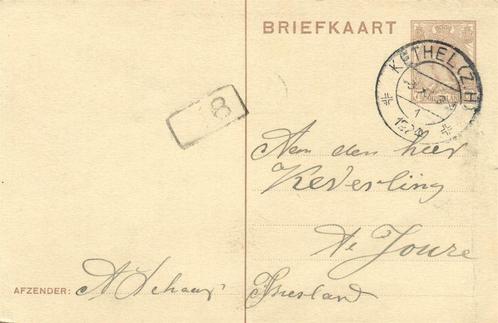 BRIEFKAART
KETHEL (Z.H)
1
8
Aan den heer
Keverling
te Joure
Friesland
AFZENDER: A Schaap